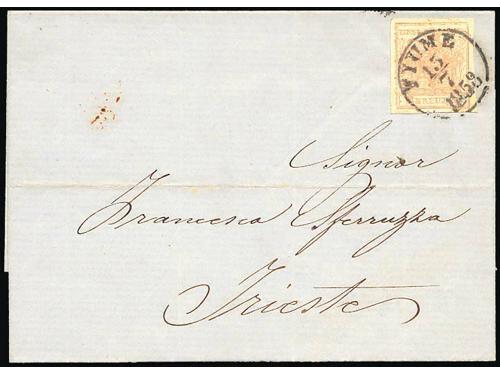 FIUME
15/7
1858
Signor
Francesco Sferruzza
Trieste